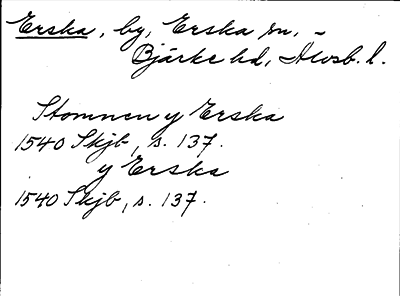 Erska, by, Erska sn. -
Bjärke hd, Älvsb. l.
Stomnen y Erska
1540 Skjb, s. 137.
y Erska
1540 Skjb, s. 137.